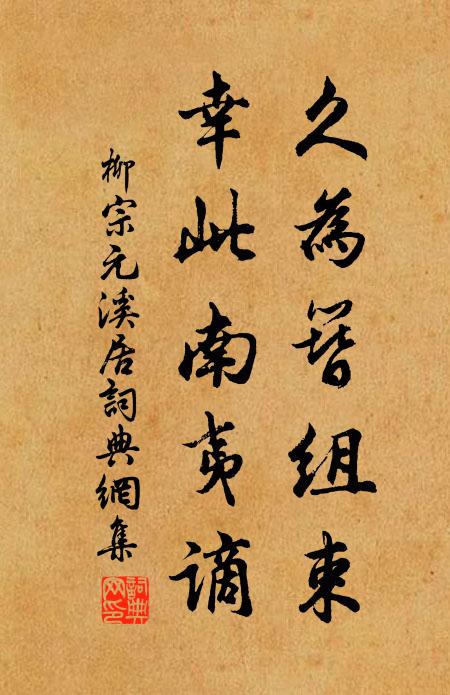 久為簪組束
幸此南夷謫
柳宗元溪居詞典網集
詞典网印